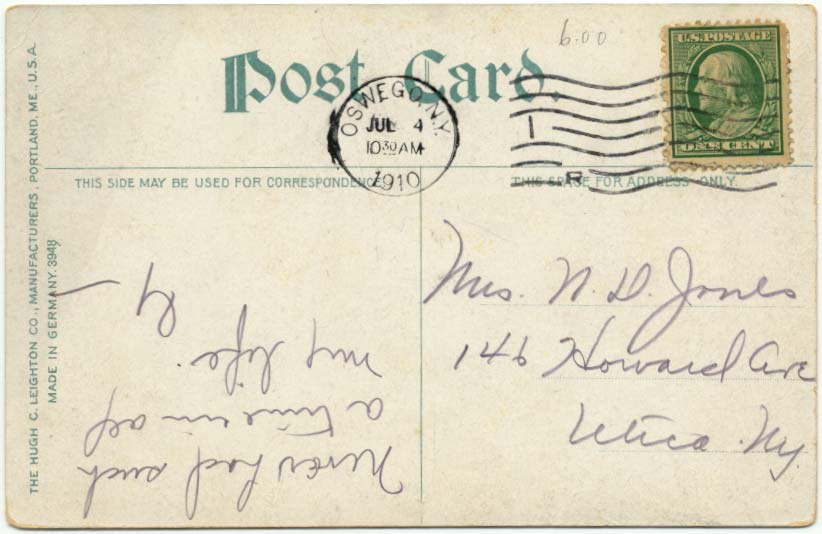 6.00
Post Card.
U.S. POSTAGE
ONE CENT
OSWEGO, N.Y.
JUL 4
10 30 AM
1910
1
R
THIS SIDE MAY BE USED FOR CORRESPONDENCE
THIS SPACE FOR ADDRESS ONLY.
Never had such
a time in all
my life.
Mrs. N. D. Jones
146 Howard Ave
Utica Ny.
THE HUGH C. LEIGHTON CO., MANUFACTURERS, PORTLAND, ME., U.S.A.
MADE IN GERMANY. 3948